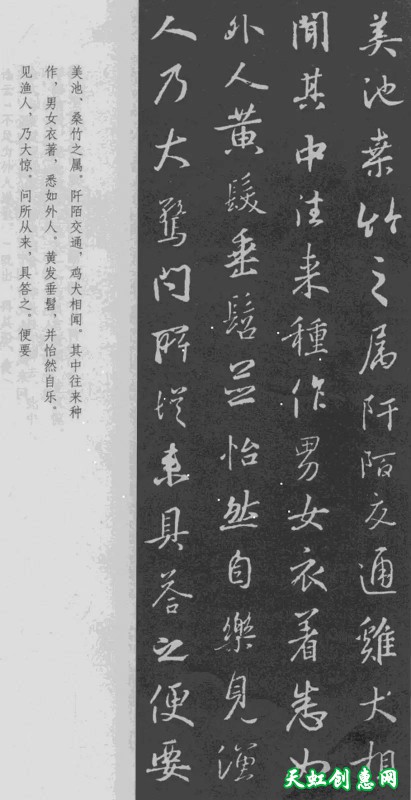 美池桒竹之属阡陌交通雞犬相
聞其中往来種作男女衣着悉如
外人黄髮垂髫並怡然自樂見漁
人乃大驚问所從来具荅之便要
美池、桑竹之属。阡陌交通，鸡犬相闻。其中往来种
作，男女衣著，悉如外人。黄发垂髫，并怡然自乐。
见渔人，乃大惊。问所从来，具答之。便要
天虹创惠网